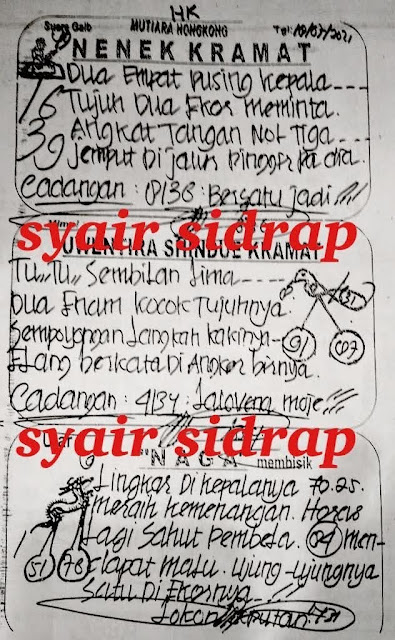 HK
Suara Gaib MUTIARA HONGKONG Tgl: 10/03/2021
NENEK KRAMAT
Dua Empat Pusing Kepala
16 Tujuh Dua Ekor Meminta.
39 Angkat Tangan Nol Tiga
Jemput Di Jalur Pinggir
Cadangan: 01/38: Bersatu jadi
syair sidrap
UWENTIRA SHINDUE KRAMAT
Tu,,Tu,, Sembilan Lima
Dua Enam Kocok Tujuhnya.
Sempoyongan Langkah Kakinya
91
Elang Berkata Di Angka
Cadangan: 4/34:
syair sidrap
"NAGA membisik
Lingkar Di Kepalanya 70.25.
Meraih Kemenangan. Harus
Lagi Sahut Pembela. 04 men-
51 78 dapat Malu. Ujung-Ujungnya
Satu Di Ekornya